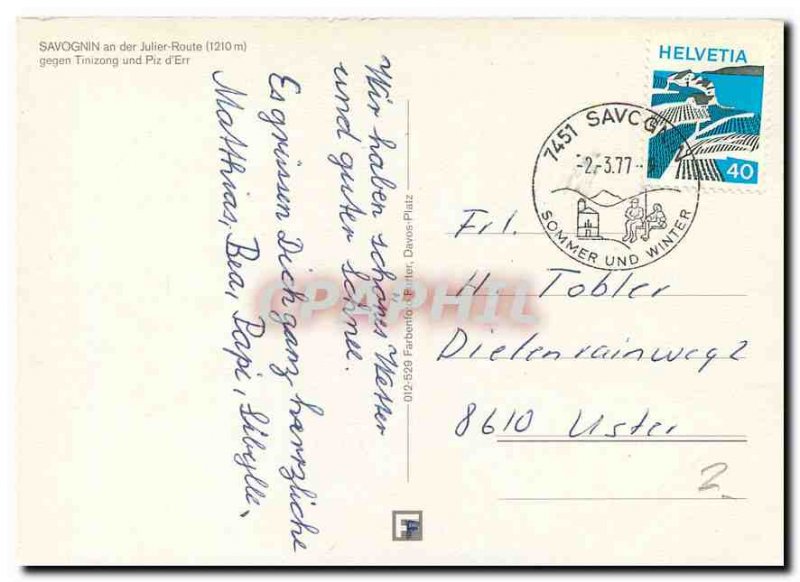 SAVOGNIN an der Julier-Route (1210 m)
gegen Tinizong und Piz d'Err
Wir haben schönes Wetter
und guter Schnee.
Es grüssen Dich ganz herrzliche
Matthias, Bea, Papi, Sibylle.
012-526 Farbenfoto Furter, Davos-Platz
HELVETIA
40
7451 SAVOGNIN
-2.-3.77-
SOMMER UND WINTER
Frl.
H. Tobler
Dielenrainweg 2
8610 Uster
2.
CPAPHIL
F